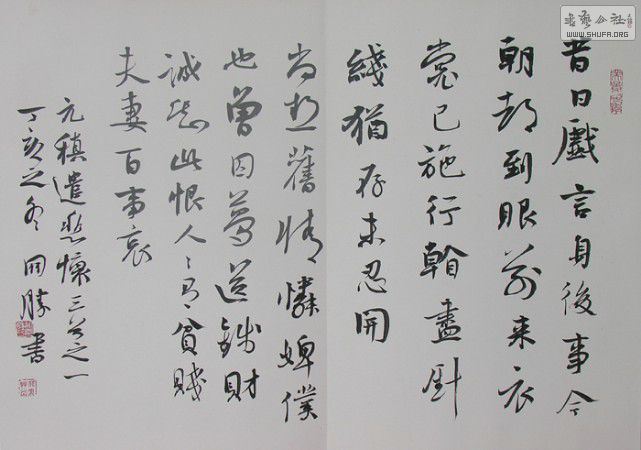 書藝公社
WWW.SHUFA.ORG
昔日戲言身後事今
朝都到眼前来衣
裳已施行盡針
綫猶存未忍開
尚想舊情憐婢僕
也曾因夢送錢財
诚知此恨人〻有貧賤
夫妻百事哀
元稹遣悲懷三首之一
丁亥之冬開勝書